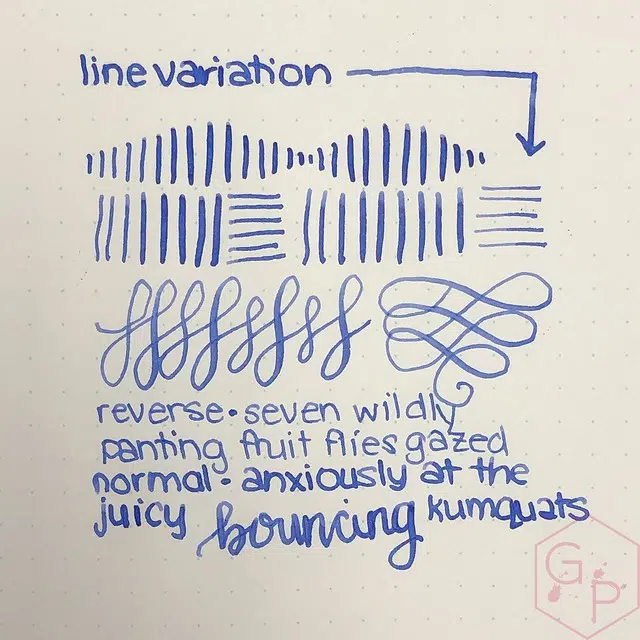 line variation
reverse • seven wildly
panting fruit flies gazed
normal • anxiously at the
juicy bouncing kumquats
GP